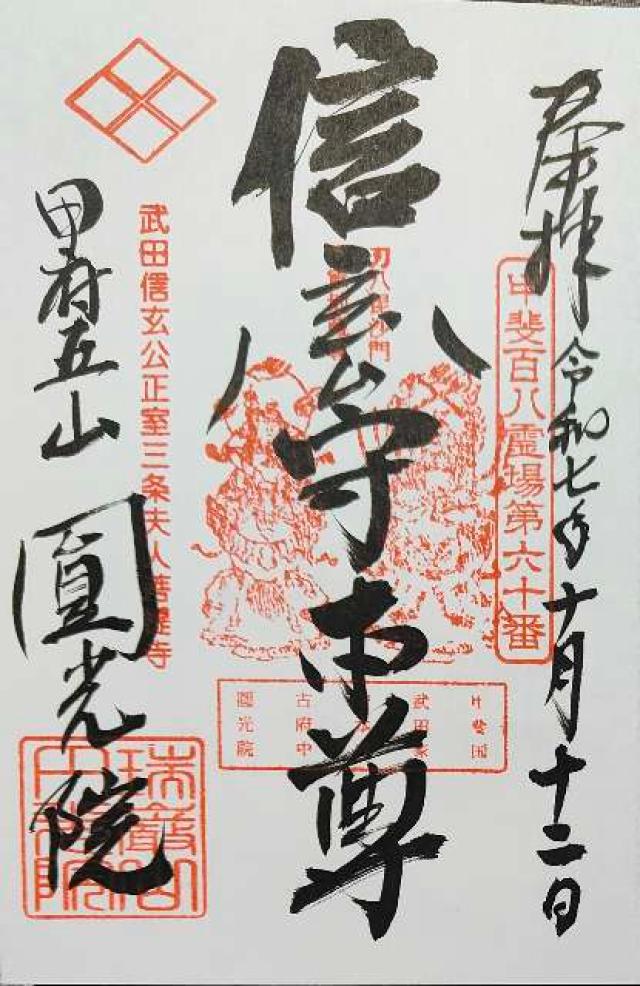 奉拝
令和七年十月十二日
甲斐百八霊場第六十番
信玄公守本尊
武田信玄公正室三条夫人菩提寺
甲府五山
圓光院
甲斐国
武田家
古府中
圓光院